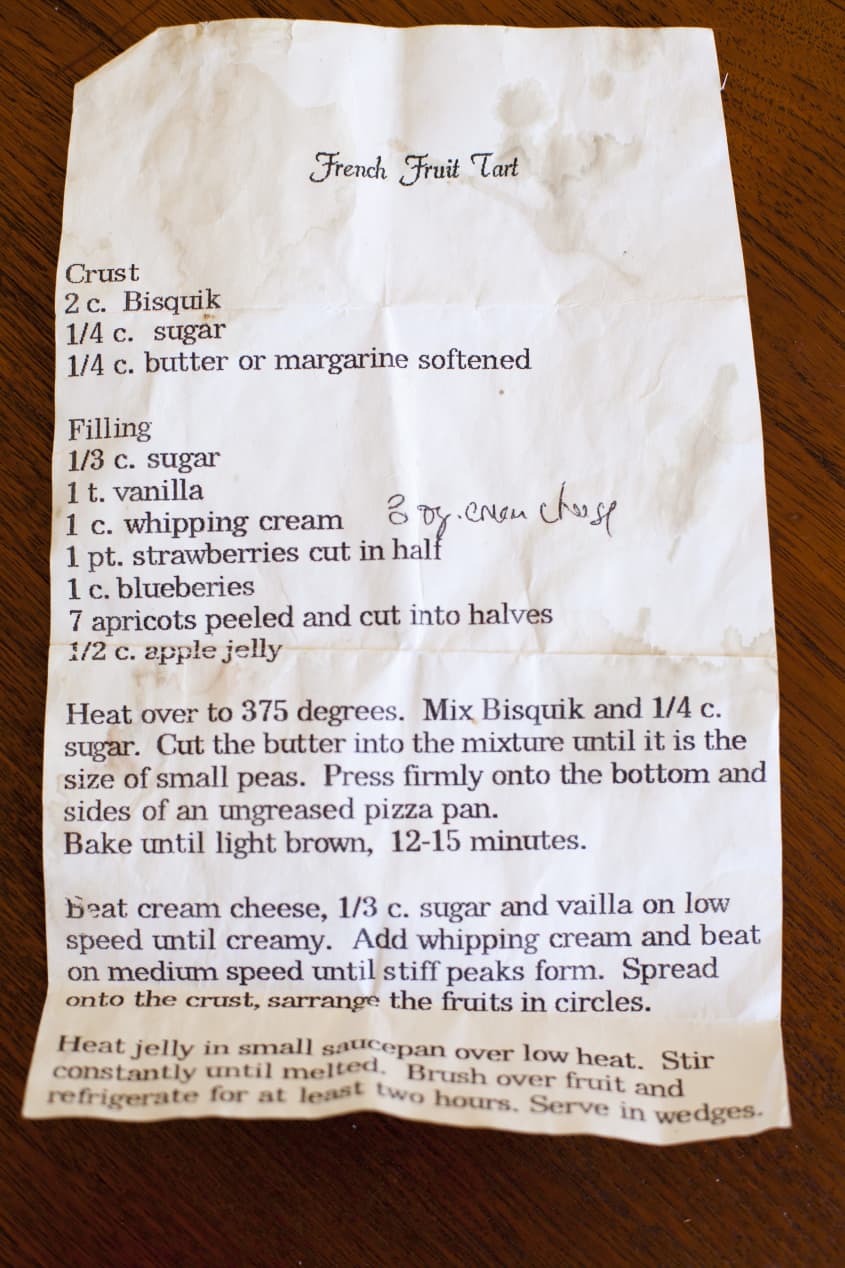 French Fruit Tart
Crust
2 c. Bisquik
1/4 c. sugar
1/4 c. butter or margarine softened
Filling
1/3 c. sugar
1 t. vanilla
1 c. whipping cream 8 oz. cream cheese
1 pt. strawberries cut in half
1 c. blueberies
7 apricots peeled and cut into halves
1/2 c. apple jelly
Heat over to 375 degrees. Mix Bisquik and 1/4 c.
sugar. Cut the butter into the mixture until it is the
size of small peas. Press firmly onto the bottom and
sides of an ungreased pizza pan.
Bake until light brown, 12-15 minutes.
Beat cream cheese, 1/3 c. sugar and vailla on low
speed until creamy. Add whipping cream and beat
on medium speed until stiff peaks form. Spread
onto the crust, sarrange the fruits in circles.
Heat jelly in small saucepan over low heat. Stir
constantly until melted. Brush over fruit and
refrigerate for at least two hours. Serve in wedges.